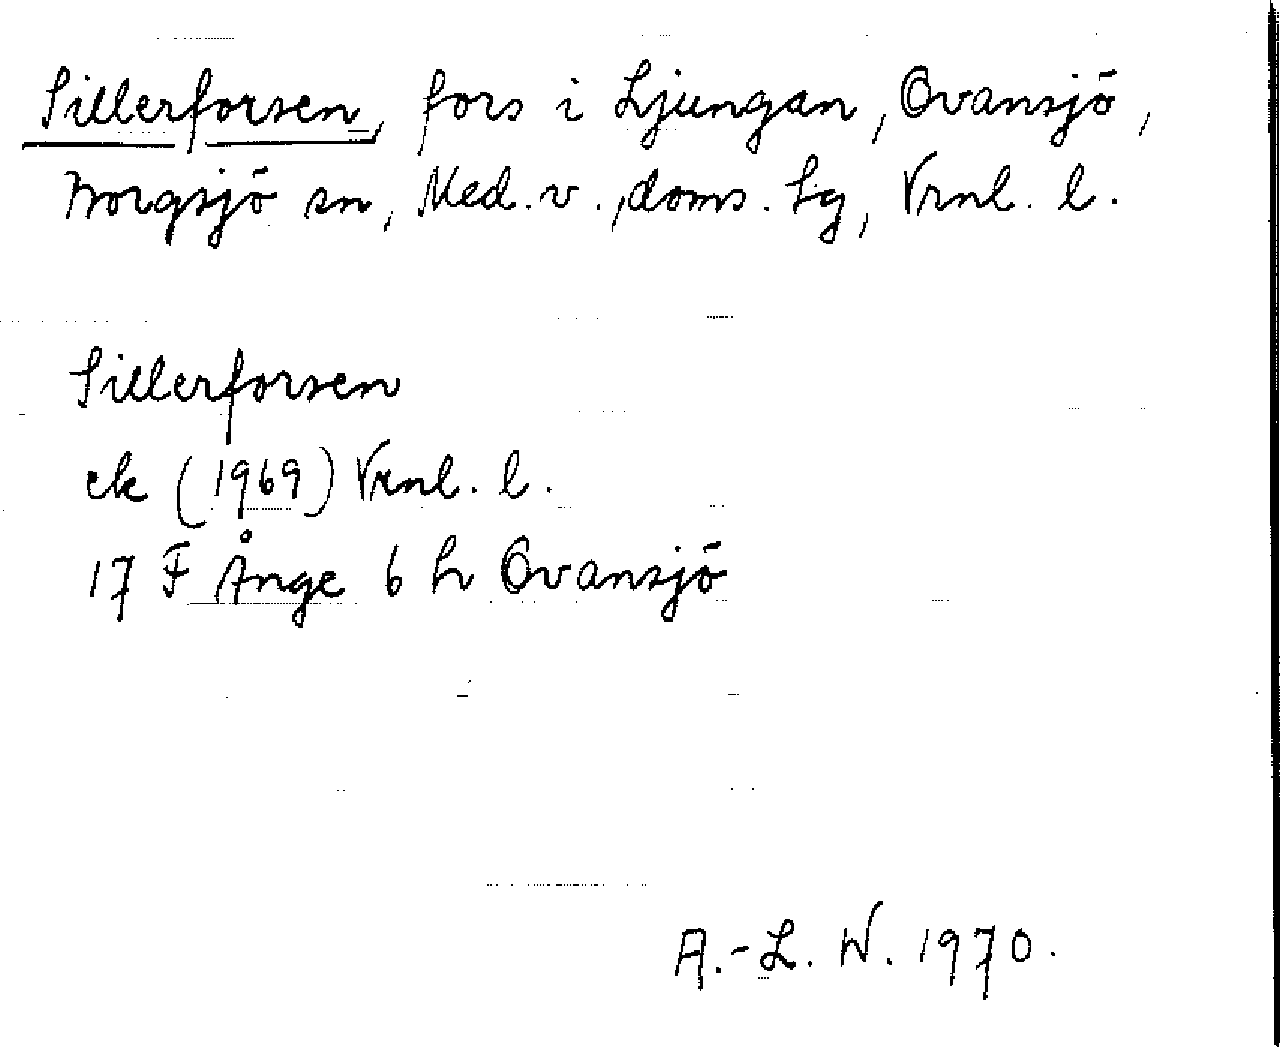 Sillerforsen, fors i Ljungan, Ovansjö,
Borgsjö sn, Med. v., doms. hg, Vrnl. l.
Sillerforsen
ek (1969) Vrnl. l.
17 F Ånge 6 h Ovansjö
A.-L. W. 1970.